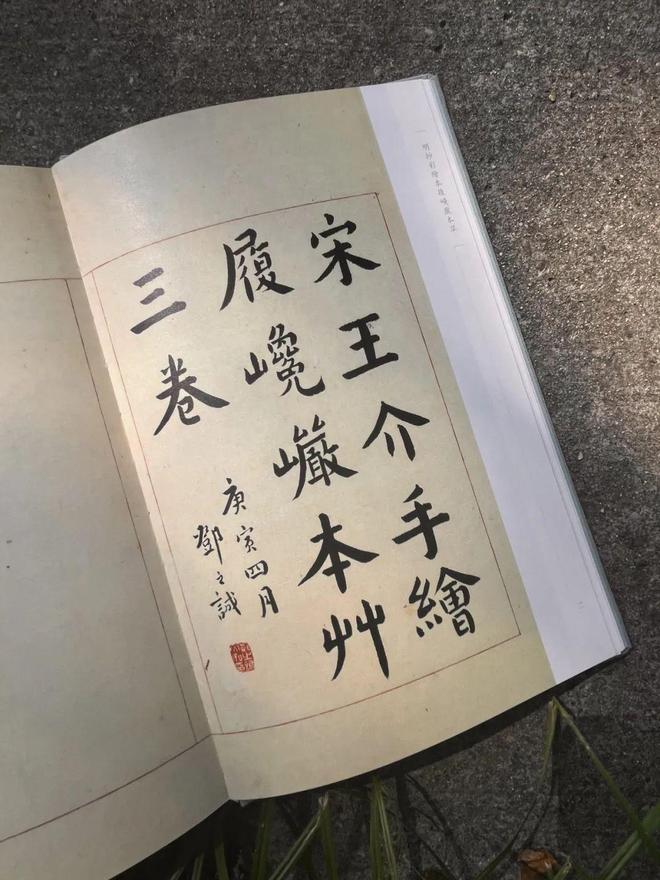 明抄彩繪本履巉巖本草
宋王介手繪
履巉巖本艸
三卷
庚寅四月
鄧之誠